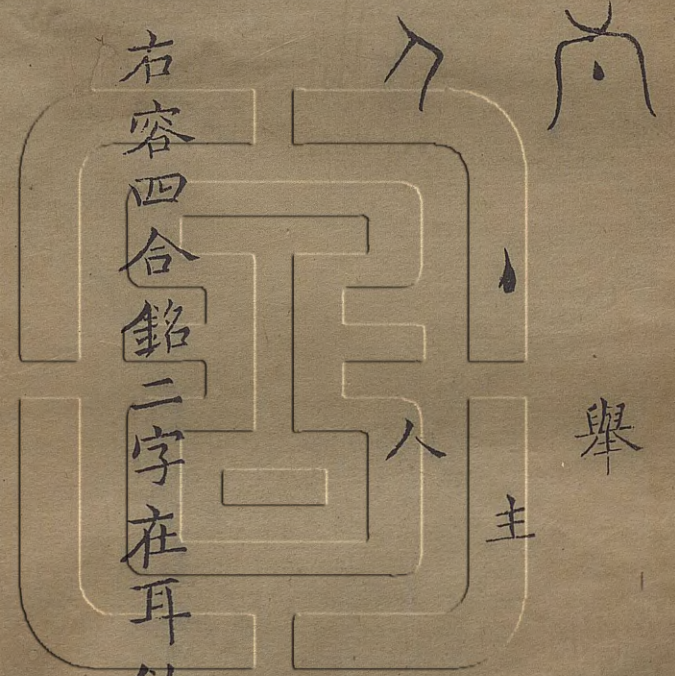 舉
主
人
右容四合銘二字在耳